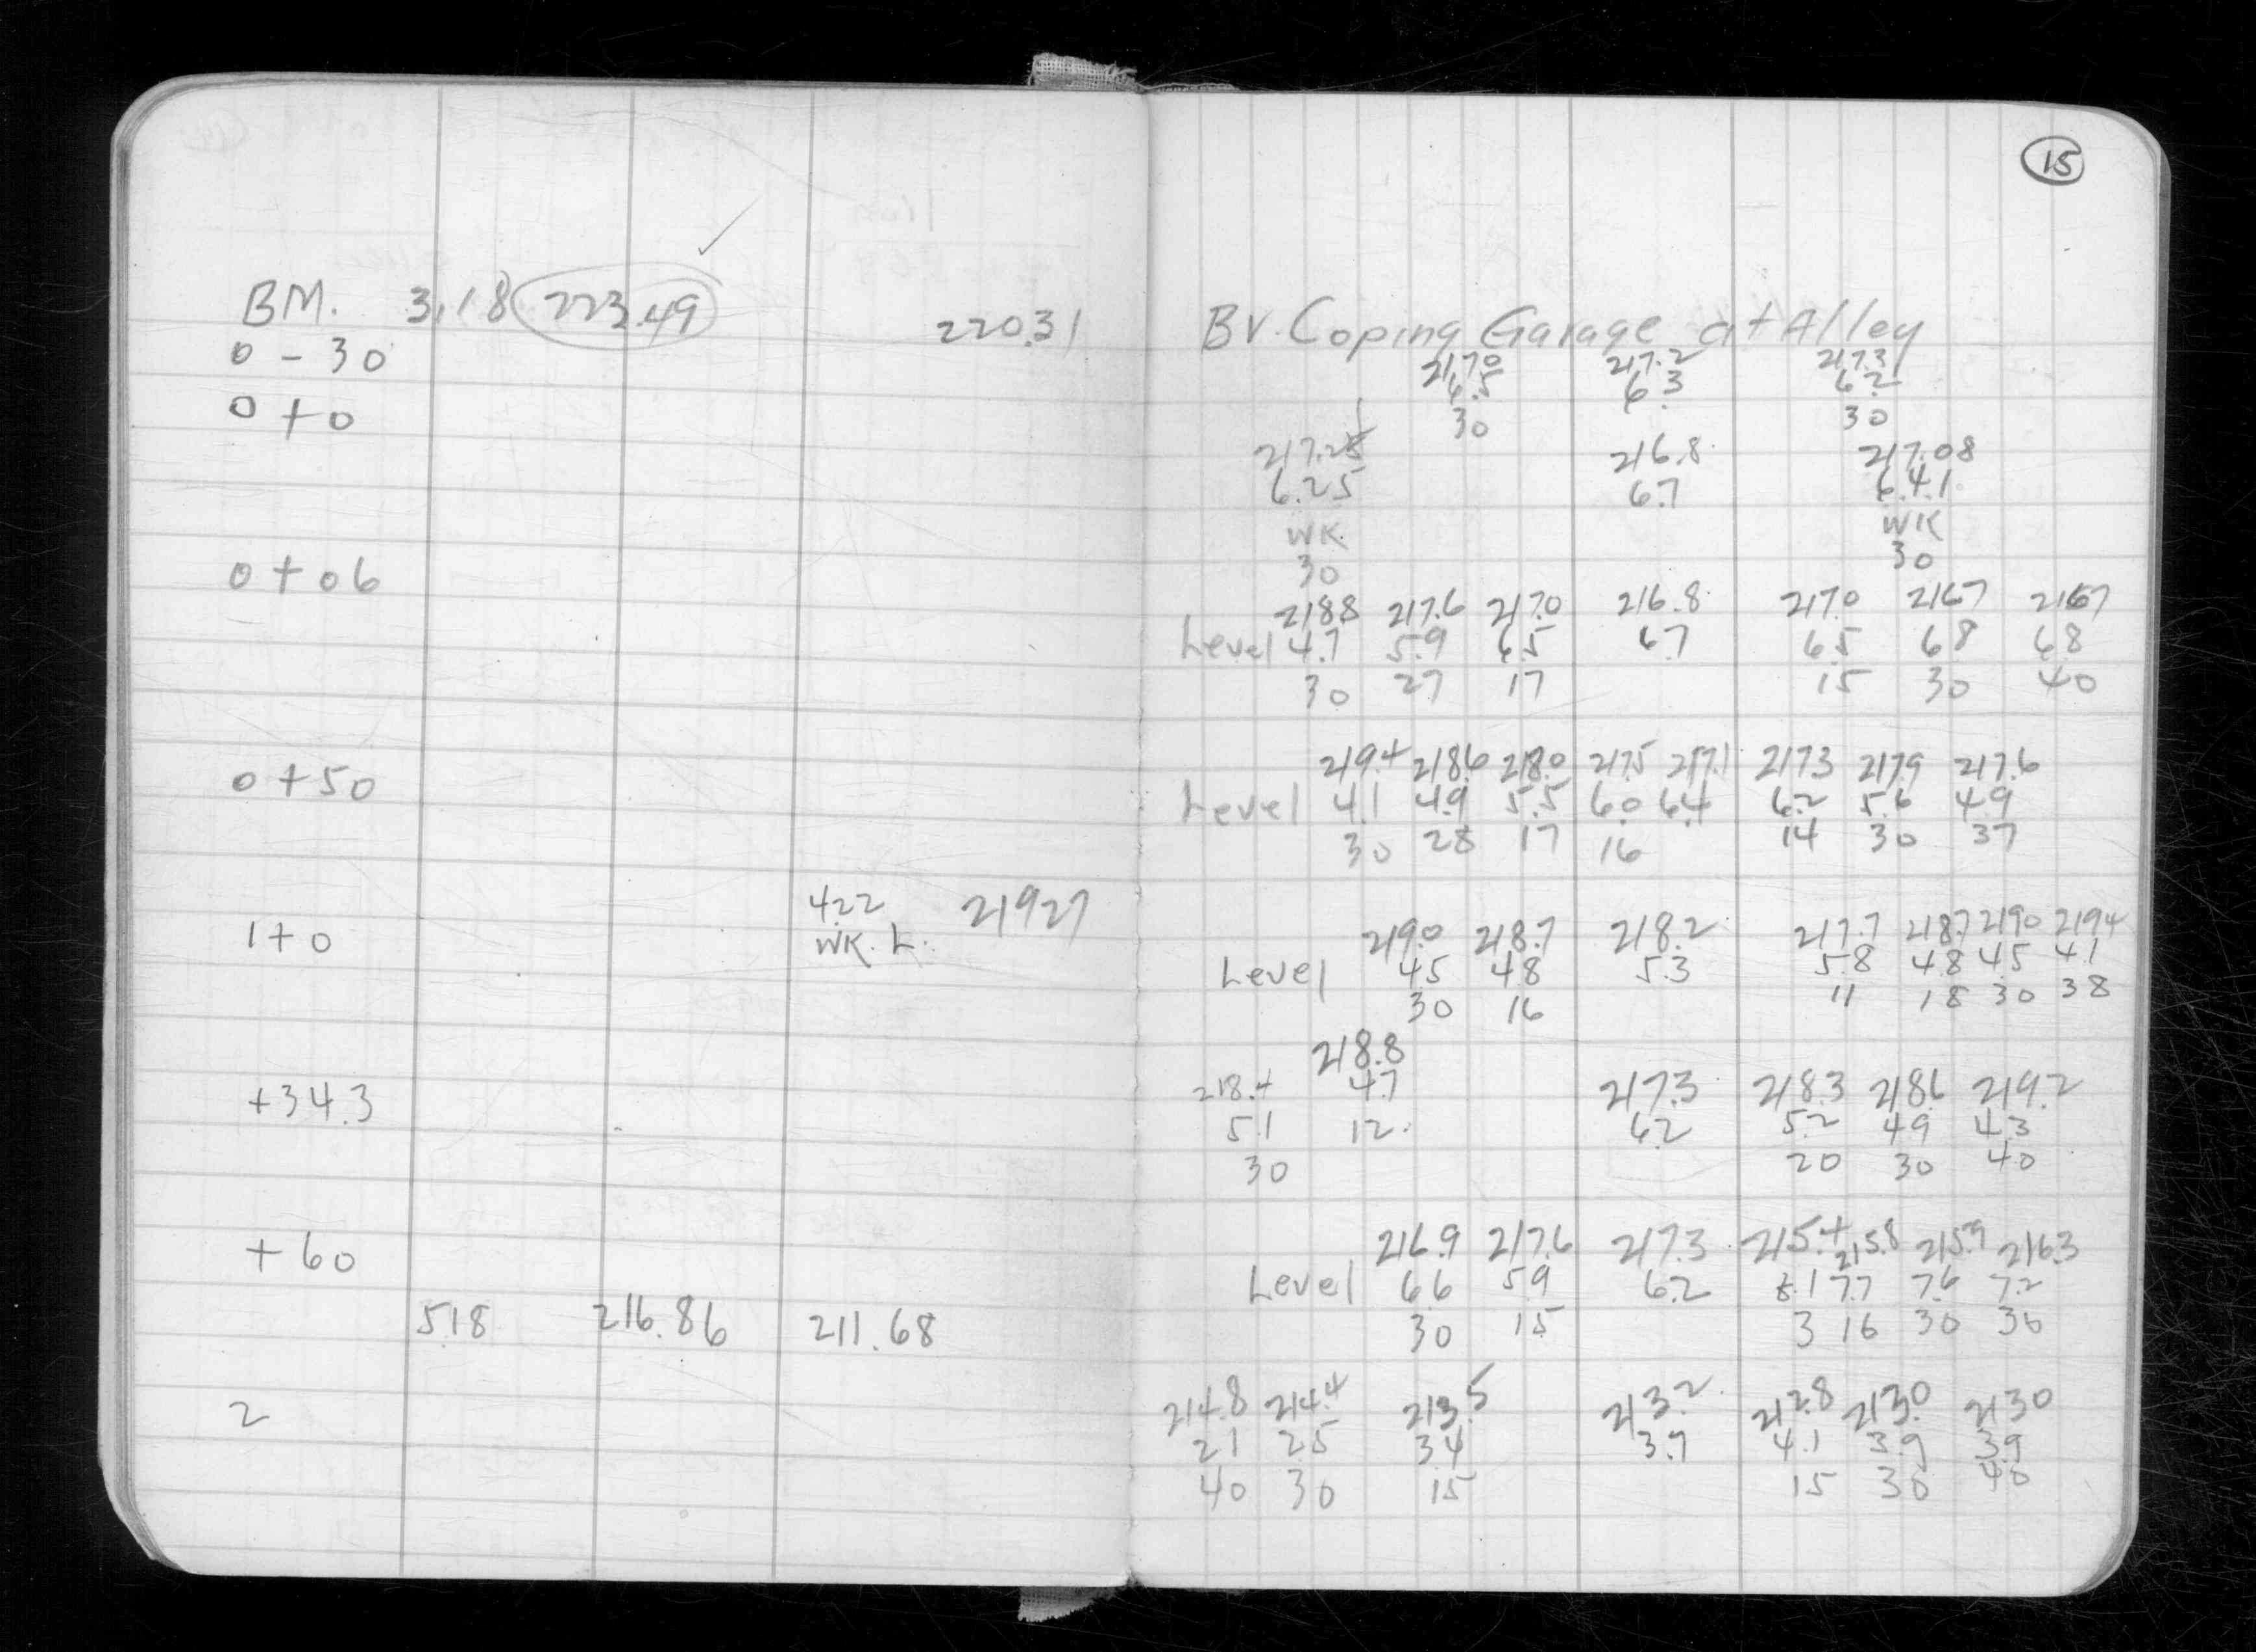 15
BM. 3.18 223.49 220.31 Br. Coping Garage at Alley
0 - 30 217.0 217.2 217.3
6.5 6.3 6.2
0 + 0 30 30
217.25 216.8 217.08
6.25 6.7 6.41
WK. WK
30 30
0 + 06 218.8 217.6 217.0 216.8 217.0 216.7 216.7
Level 4.7 5.9 6.5 6.7 6.5 6.8 6.8
30 27 17 15 30 40
0 + 50 219.4 218.6 218.0 217.5 217.1 217.3 217.9 217.6
Level 4.1 4.9 5.5 6.0 6.4 6.2 5.6 4.9
30 28 17 16 14 30 37
4.22 219.27
1 + 0 WK. L. 219.0 218.7 218.2 217.7 218.7 219.0 219.4
Level 4.5 4.8 5.3 5.8 4.8 4.5 4.1
30 16 11 18 30 38
218.8
+34.3 218.4 4.7 217.3 218.3 218.6 219.2
5.1 12. 6.2 5.2 4.9 4.3
30 20 30 40
+ 60 216.9 217.6 217.3 215.4 215.8 215.9 216.3
Level 6.6 5.9 6.2 8.1 7.7 7.6 7.2
5.18 216.86 211.68 30 15 3 16 30 36
2 214.8 214.4 213.5 213.2 212.8 213.0 213.0
2.1 2.5 3.4 3.7 4.1 3.9 3.9
40 30 15 15 30 40